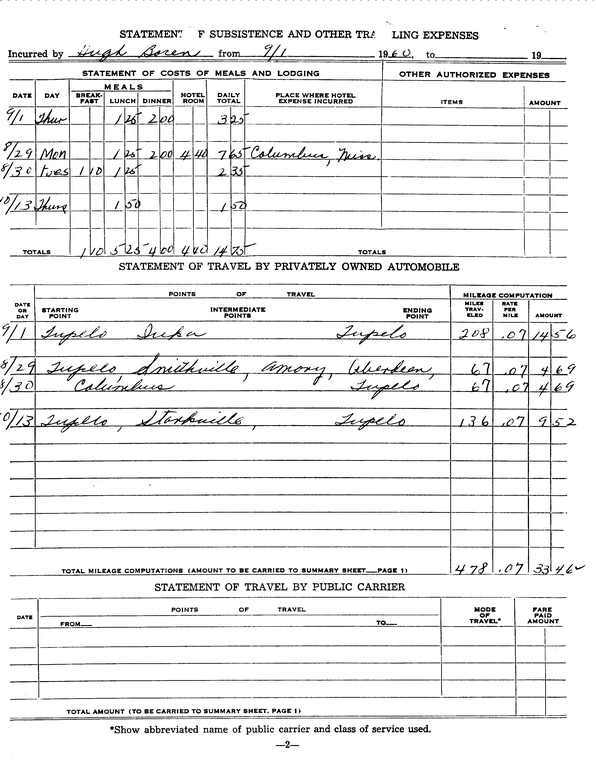 STATEMEN F SUBSISTENCE AND OTHER TRA LING EXPENSES
Incurred by Hugh Boren from 9/1 1960, to 19
STATEMENT OF COSTS OF MEALS AND LODGING OTHER AUTHORIZED EXPENSES
DATE DAY MEALS BREAK-FAST LUNCH DINNER HOTEL ROOM DAILY TOTAL PLACE WHERE HOTEL EXPENSE INCURRED ITEMS AMOUNT
9/1 Thur 1 25 2 00 3 25
8/29 Mon 1 25 2 00 4 40 7 65 Columbus, Miss.
8/30 tues 1 10 1 25 2 35
10/13 Thurs 1 50 1 50
TOTALS 1 10 5 25 4 00 4 40 14 75 TOTALS
STATEMENT OF TRAVEL BY PRIVATELY OWNED AUTOMOBILE
POINTS OF TRAVEL MILEAGE COMPUTATION
DATE OR DAY STARTING POINT INTERMEDIATE POINTS ENDING POINT MILES TRAV-ELED RATE PER MILE AMOUNT
9/1 Tupelo Tupelo 208 .07 14 56
8/29 Tupelo Smithville, Amory, Aberdeen, 67 .07 4 69
8/30 Columbus Tupelo 67 .07 4 69
10/13 Tupelo, Starkville, Tupelo 136 .07 9 52
TOTAL MILEAGE COMPUTATIONS (AMOUNT TO BE CARRIED TO SUMMARY SHEET—PAGE 1) 478 .07 33 46
STATEMENT OF TRAVEL BY PUBLIC CARRIER
DATE POINTS OF TRAVEL MODE OF TRAVEL* FARE PAID AMOUNT
FROM— TO—
TOTAL AMOUNT (TO BE CARRIED TO SUMMARY SHEET, PAGE 1)
*Show abbreviated name of public carrier and class of service used.
—2—